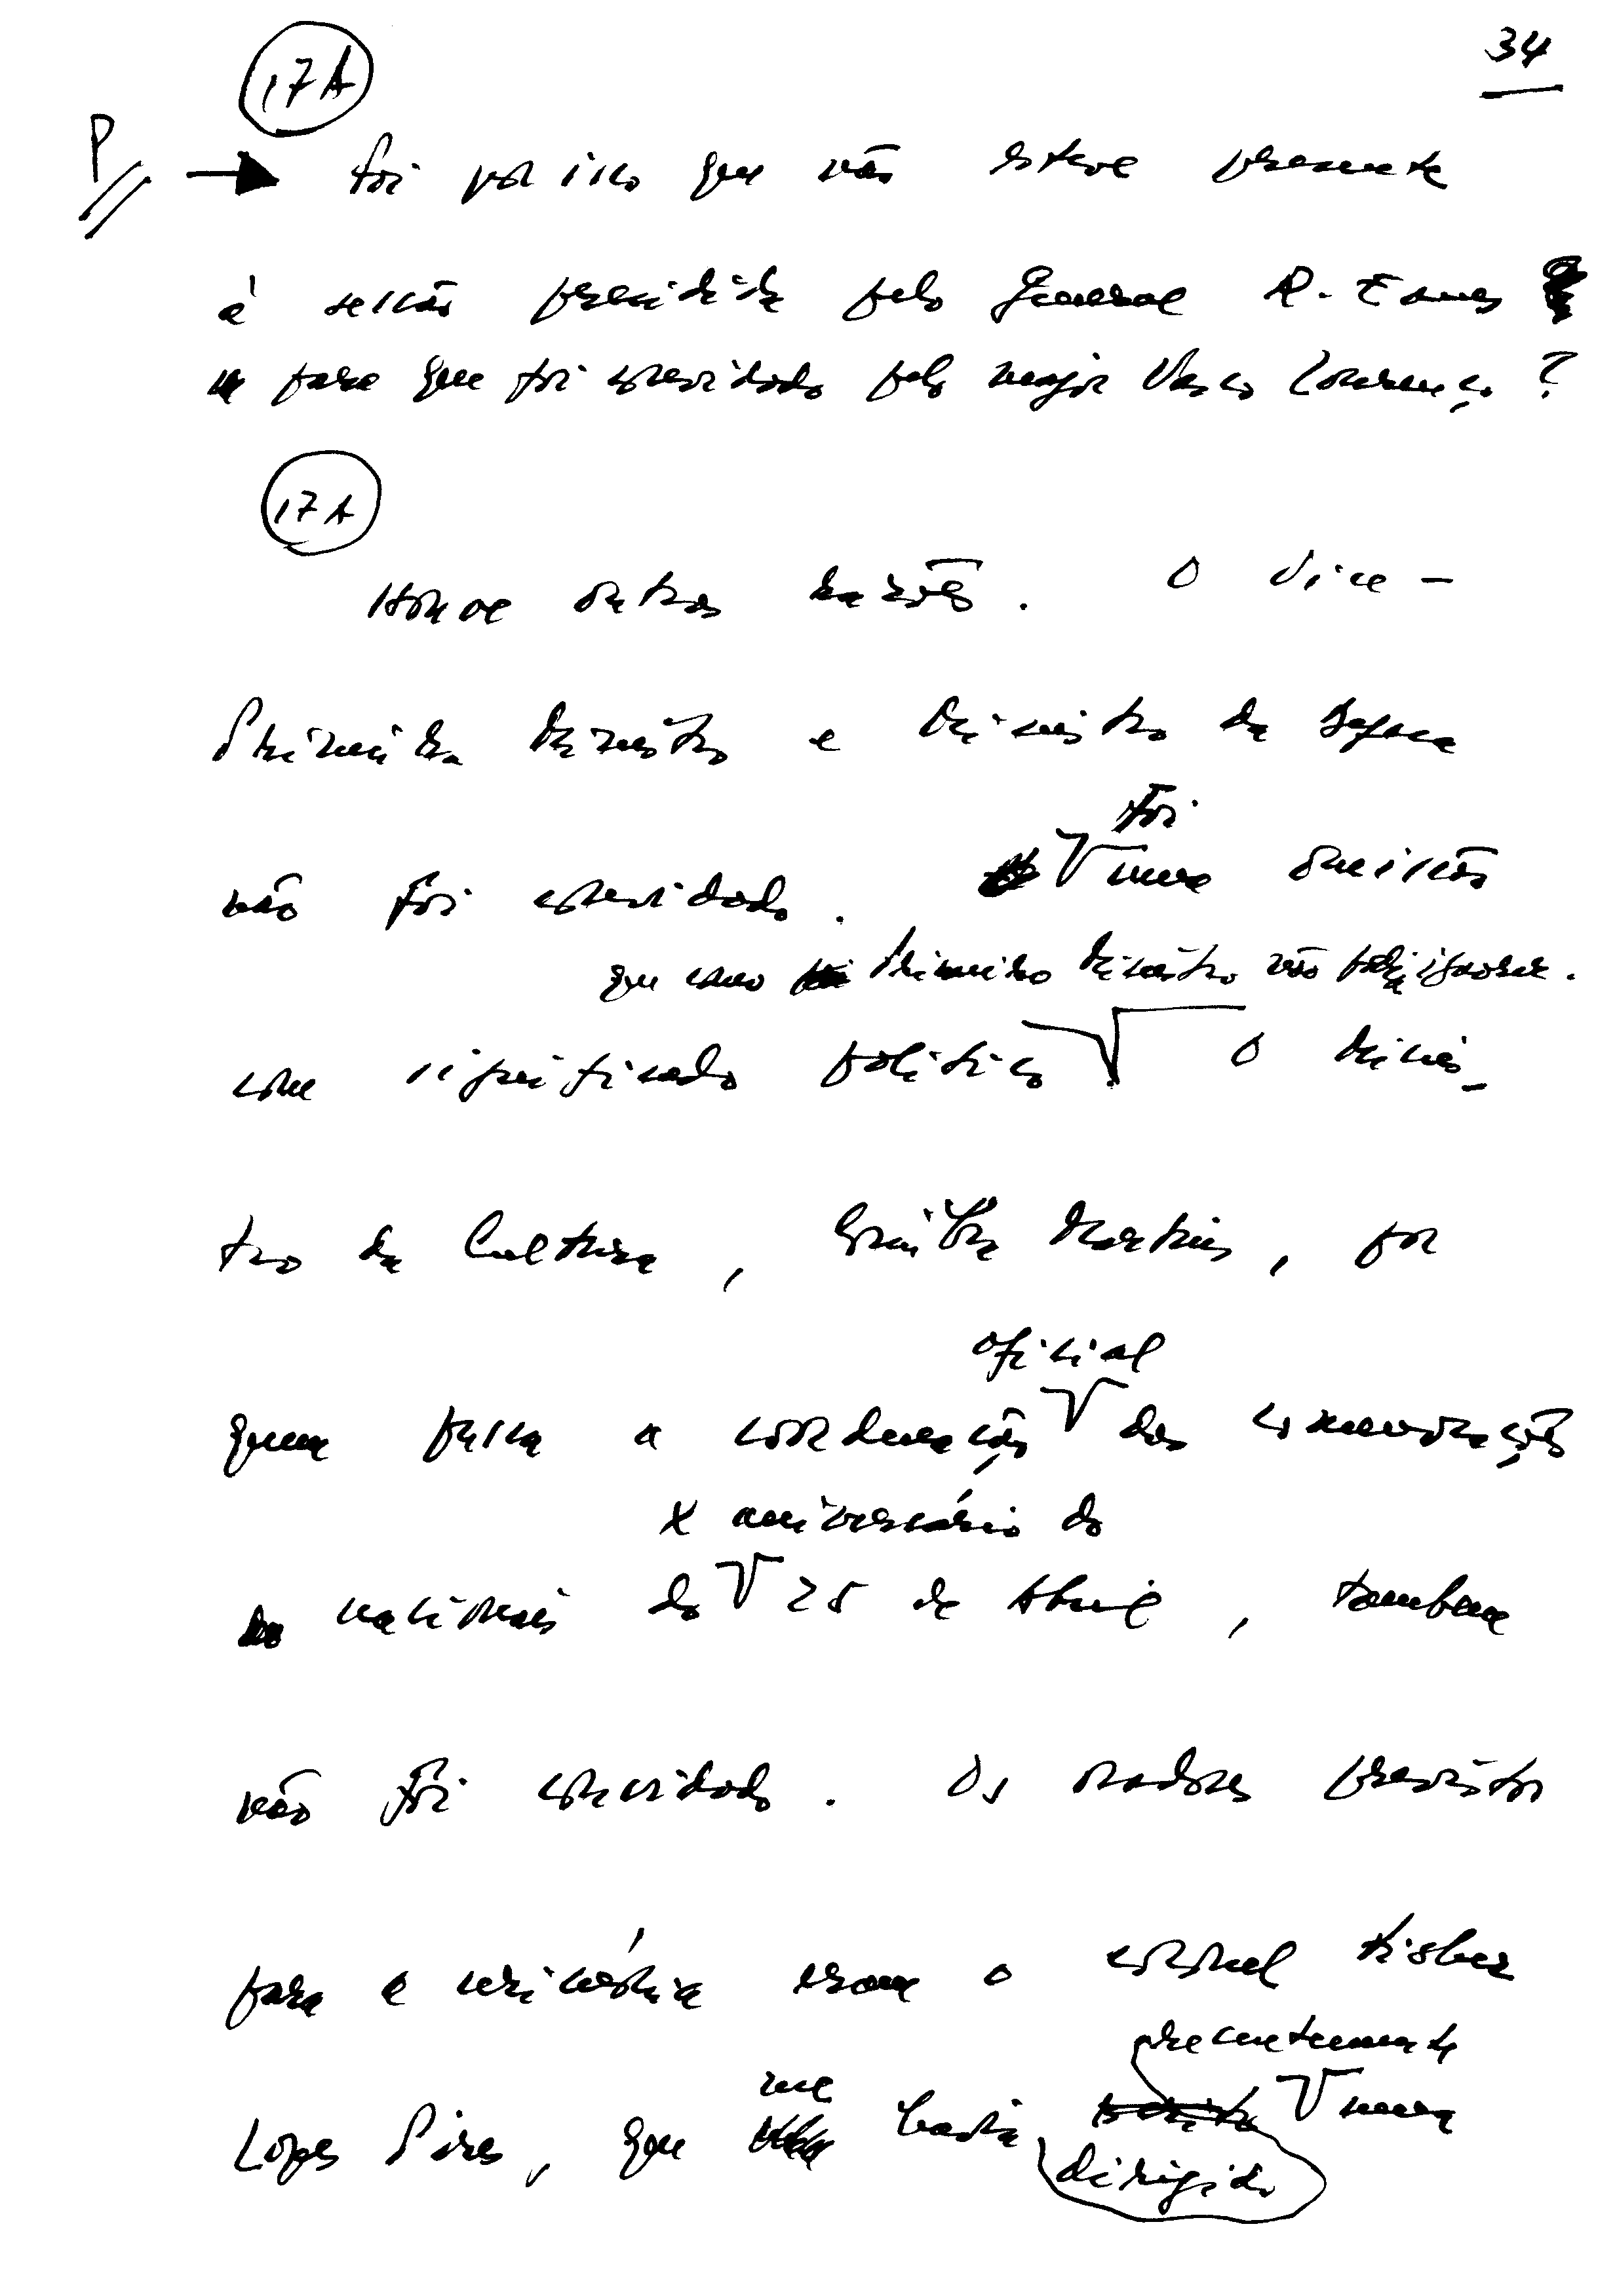 17A
34
P // → Foi por isso que não esteve presente
à sessão presidida pelo General R. Eanes
para que foi convidado pelo major Vasco Lourenço?
17A
Houve outras razões. O Vice-
Primeiro Ministro e Ministro da Defesa
não foi convidado. Foi uma omissão
que como Primeiro Ministro não podia ignorar.
com significado político O Minis-
tro da Cultura, Coimbra Martins, por
oficial
quem passa a coordenação das comemorações
X aniversário do
nacionais do 25 de Abril, também
não foi convidado. Os oradores previstos
para a cerimónia eram o coronel
recentemente
me
Lopes Pires, que havia uma
dirigido